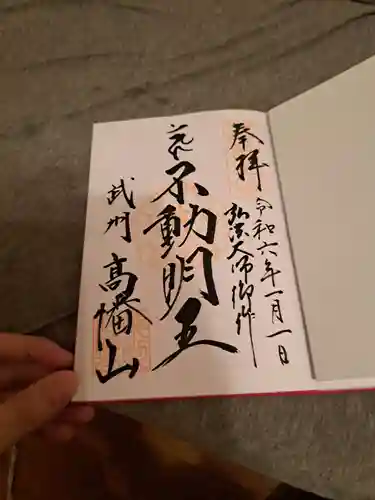 奉拝
令和六年一月一日
弘法大師御作
不動明王
武州
高幡山